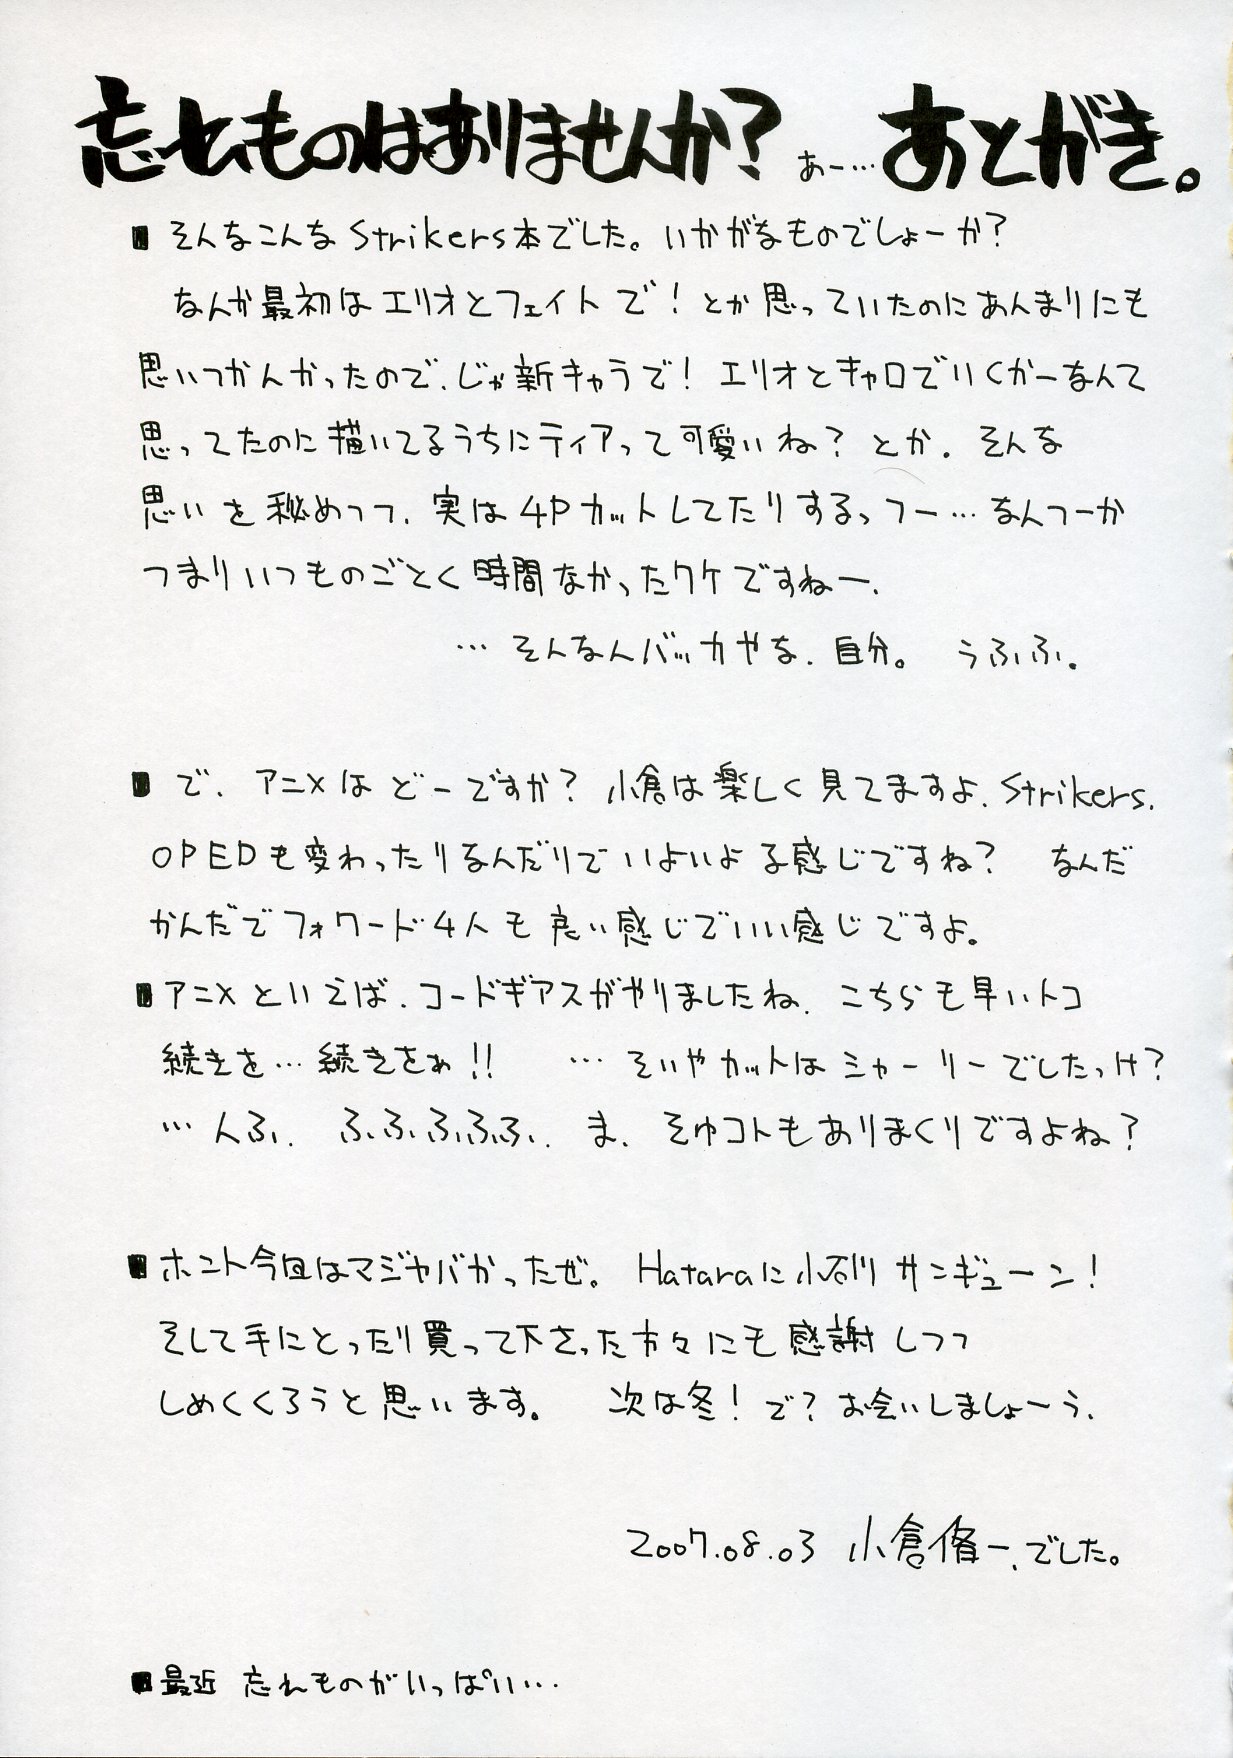 忘れものはありませんか? あー…あとがき。
■ そんなこんなStrikers本でした。いかがなものでしょーか?
なんか最初はエリオとフェイトで!とか思っていたのにあんまりにも
思いつかんかったので、じゃ新キャラで!エリオとキャロでいくかーなんて
思ってたのに描いてるうちにティアって可愛いね?とか、そんな
思いを秘めつつ、実は4Pカットしてたりするっつー…なんつーか
つまりいつものごとく時間なかったワケですねー、
…そんなんバッカやな、自分。 うふふ。
■ で、アニメはどーですか? 小倉は楽しく見てますよ、Strikers.
OPEDも変わったりなんだりでいよいよな感じですね? なんだ
かんだでフォワード4人も良い感じでいい感じですよ。
■アニメといえば、コードギアスがやりましたね、こちらも早いトコ
続きを…続きをぉ!! …そいやカットはシャーリーでしたっけ?
…んふ、ふふふふふ、ま、そゆコトもありまくりですよね?
■ホント今回はマジヤバかったぜ。Hataraに小石川 サンギューン!
そして手にとったり買って下さった方々にも感謝しつつ
しめくくろうと思います。 次は冬!で?お会いしましょーう、
2007.08.03 小倉脩一、でした。
■最近 忘れものがいっぱい…